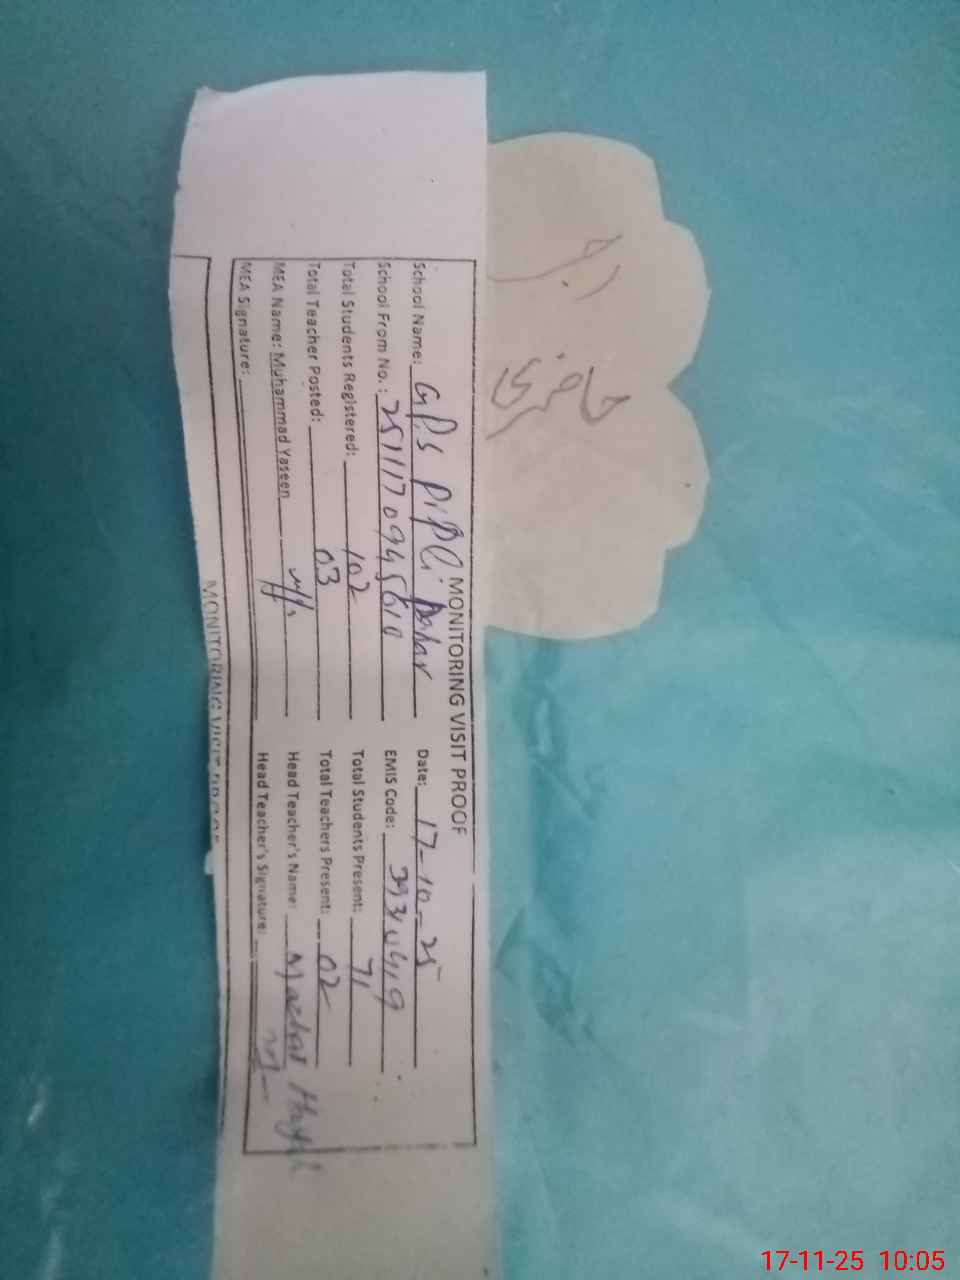 MONITORING VISIT PROOF
School Name: G.P.S Pipli Dahar Date: 17-10-25
School From No.: 2511170945610 EMIS Code: 39310419
Total Students Registered: 102 Total Students Present: 71
Total Teacher Posted: 03 Total Teachers Present: 02
MEA Name: Muhammad Yaseen Head Teacher's Name: Mazhar
MEA Signature: Head Teacher's Signature:
MONITORING VISIT PROOF
حاضری
17-11-25 10:05